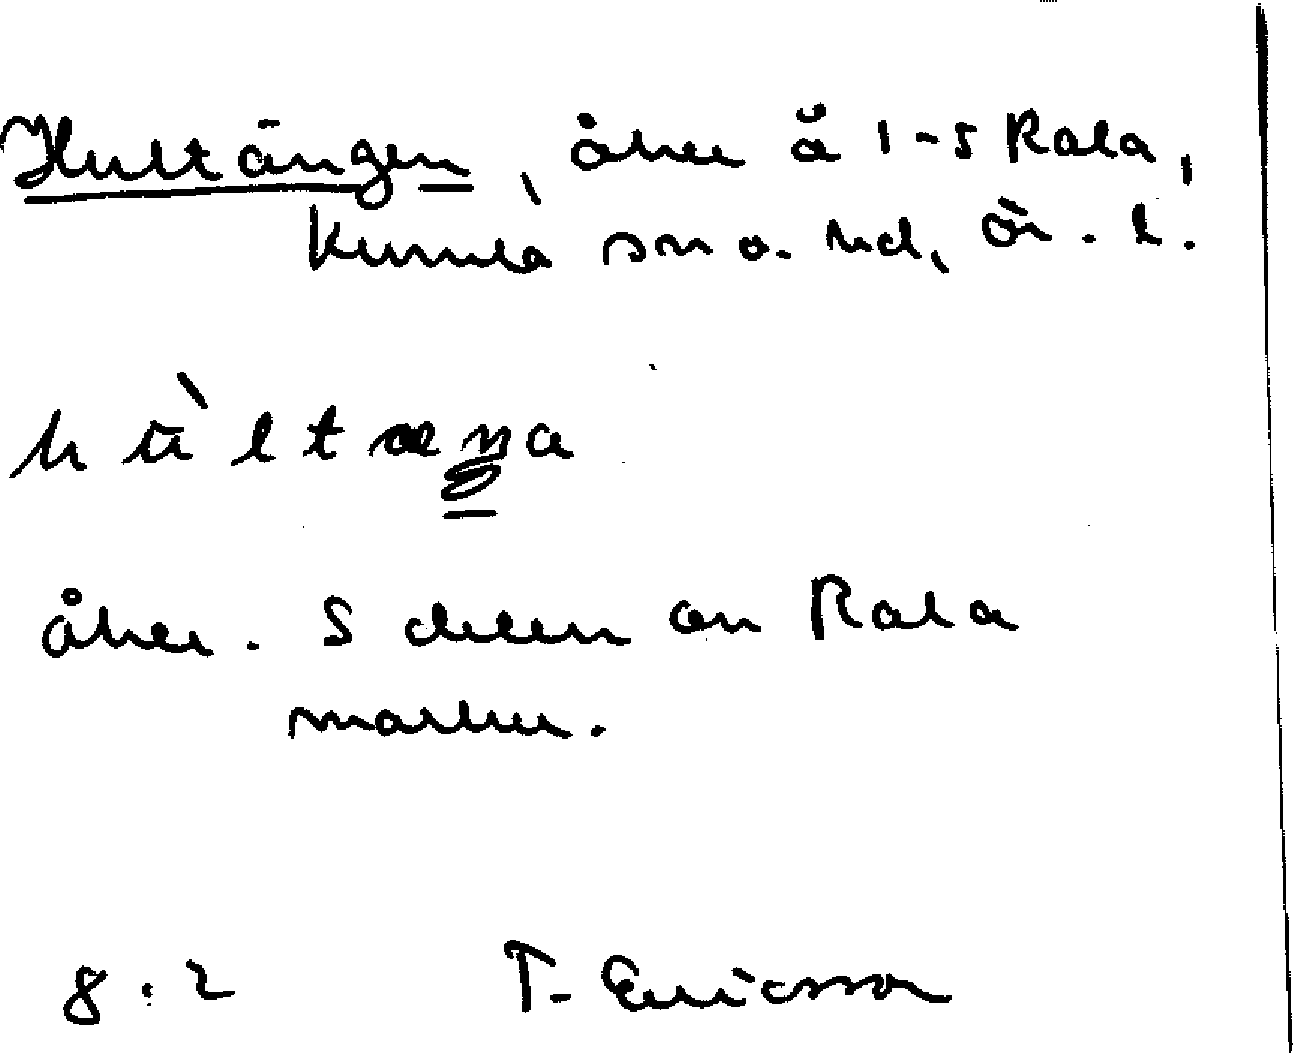 Hultängen, åker å 1-5 Rala,
Kumla sn o. hd, Ör. l.
hùltæŋa
åker. S delen av Rala
marker.
8:2 T. Ericsson